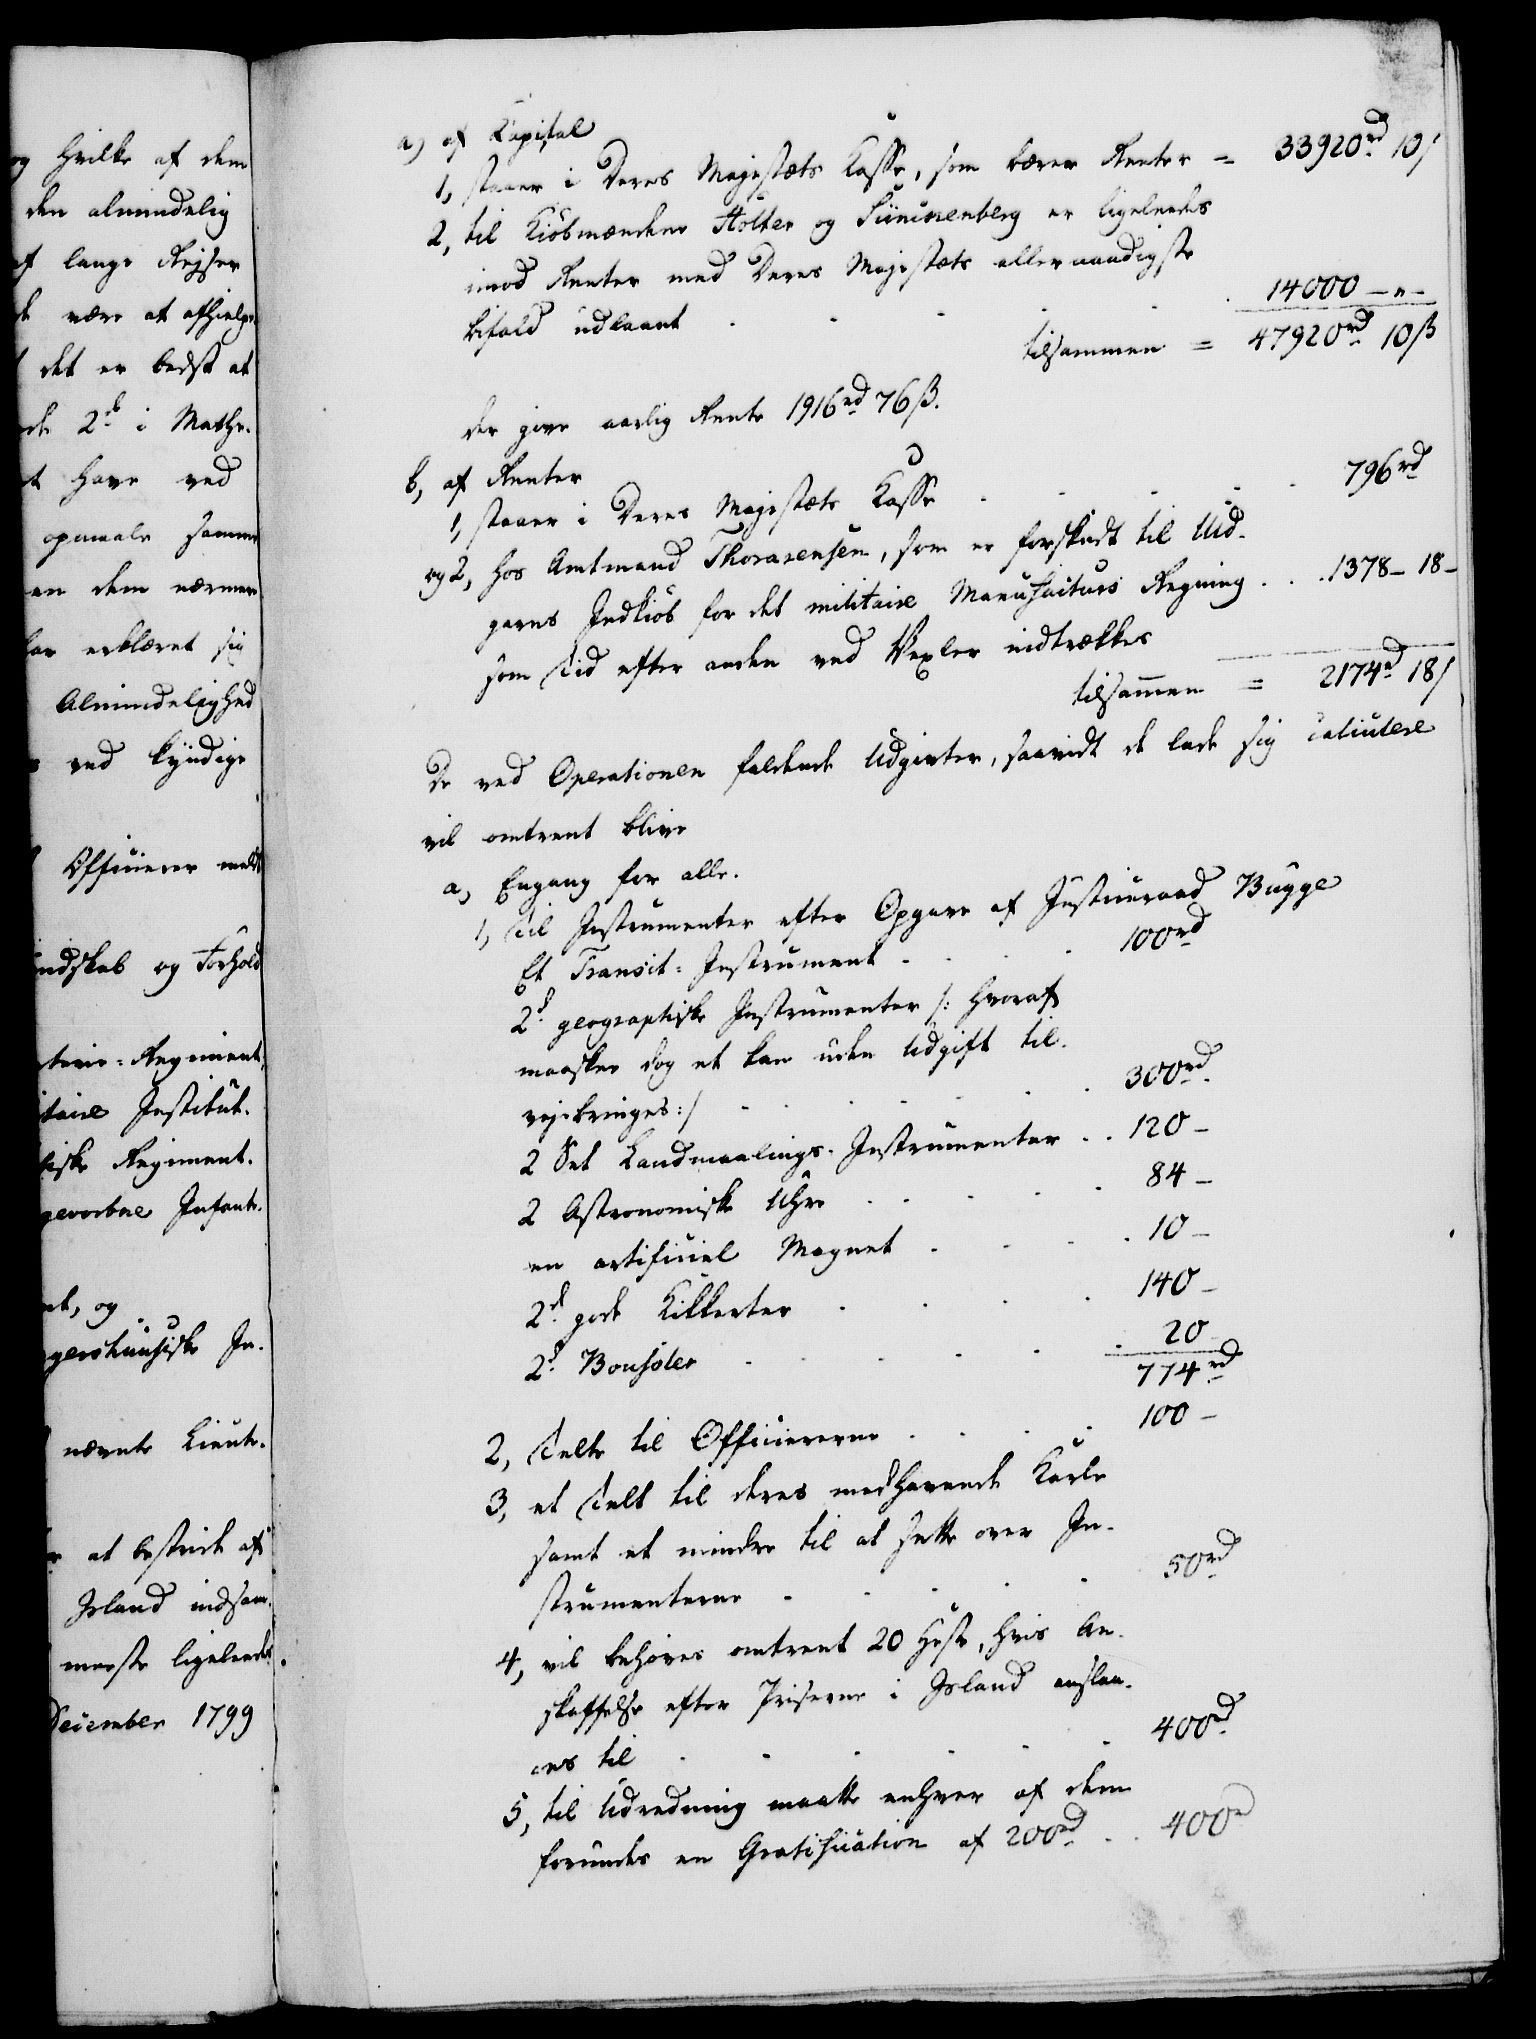 og hvilke af dem
den almindelig
af lange Rejser
være at afhielpe
det er bedst at
de 2de i Mathe-
t have ved
opmaale samme
en dem nærmer
har erklæret sig
Almindelighed
ved kyndige
Officierer meldt
indskab og Forhold
terie-Regiment,
itaire Institut.
ske Regiment.
gevorbne Infant.
et, og
gershuusiske In-
nævnte Lieute-
at bestride af
Island indsam-
meeste ligeleedes
December 1799
a) af Kapital
1, staaer i Deres Majestæts Kasse, som bærer Renter = 33920rd 10/
2, til Kiøbmændene Stolter og Sünnenberg er ligeleedes
imod Renter med Deres Majestæts allernaadigste
bifald udlaant . . . . . 14000 — " —
tilsammen = 47920rd 10ß
der give aarlig Rente 1916rd 76ß.
b, af Renter
1, staaer i Deres Majestæts Kasse . . . . 796rd
og 2, hos Amtmand Thorarensen, som er forskudt til Uld-
garns Indkiøb for det militaire Manufacturs Regning . . . 1378 — 18 —
som Tid efter anden ved Vexler indtrækkes
tilsammen = 2174rd 18/
De ved Operationen faldende Udgivter, saavidt de lade sig calculere
vil omtrent blive
a, Engang for alle.
1, Til Instrumenter efter Opgave af Justiceraad Bugge
Et Transit-Instrument . . . . 100rd
2de geographiske Instrumenter /: hvoraf
maaskee dog et kan uden Udgift til-
vejebringes :/ . . . . . 300rd
2 Set Landmaalings-Instrumenter . . 120 —
2 Astronomiske Uhre . . . . . 84 —
en artificiel Magnet . . . . 10 —
2de gode Kikkerter . . . . 140 —
2de Boussoler . . . . . 20
774rd
2, Telte til Officiererne . . . . 100 —
3, et Telt til deres medhavende Karle
samt et mindre til at sætte over In-
strumenterne . . . . . 50rd
4, vil behøves omtrent 20 Heste, hvis An-
skaffelse efter Priserne i Island anslaa-
es til . . . . . . 400rd
5, til Udredning maatte enhver af dem
forundes en Gratification af 200rd . . 400rd